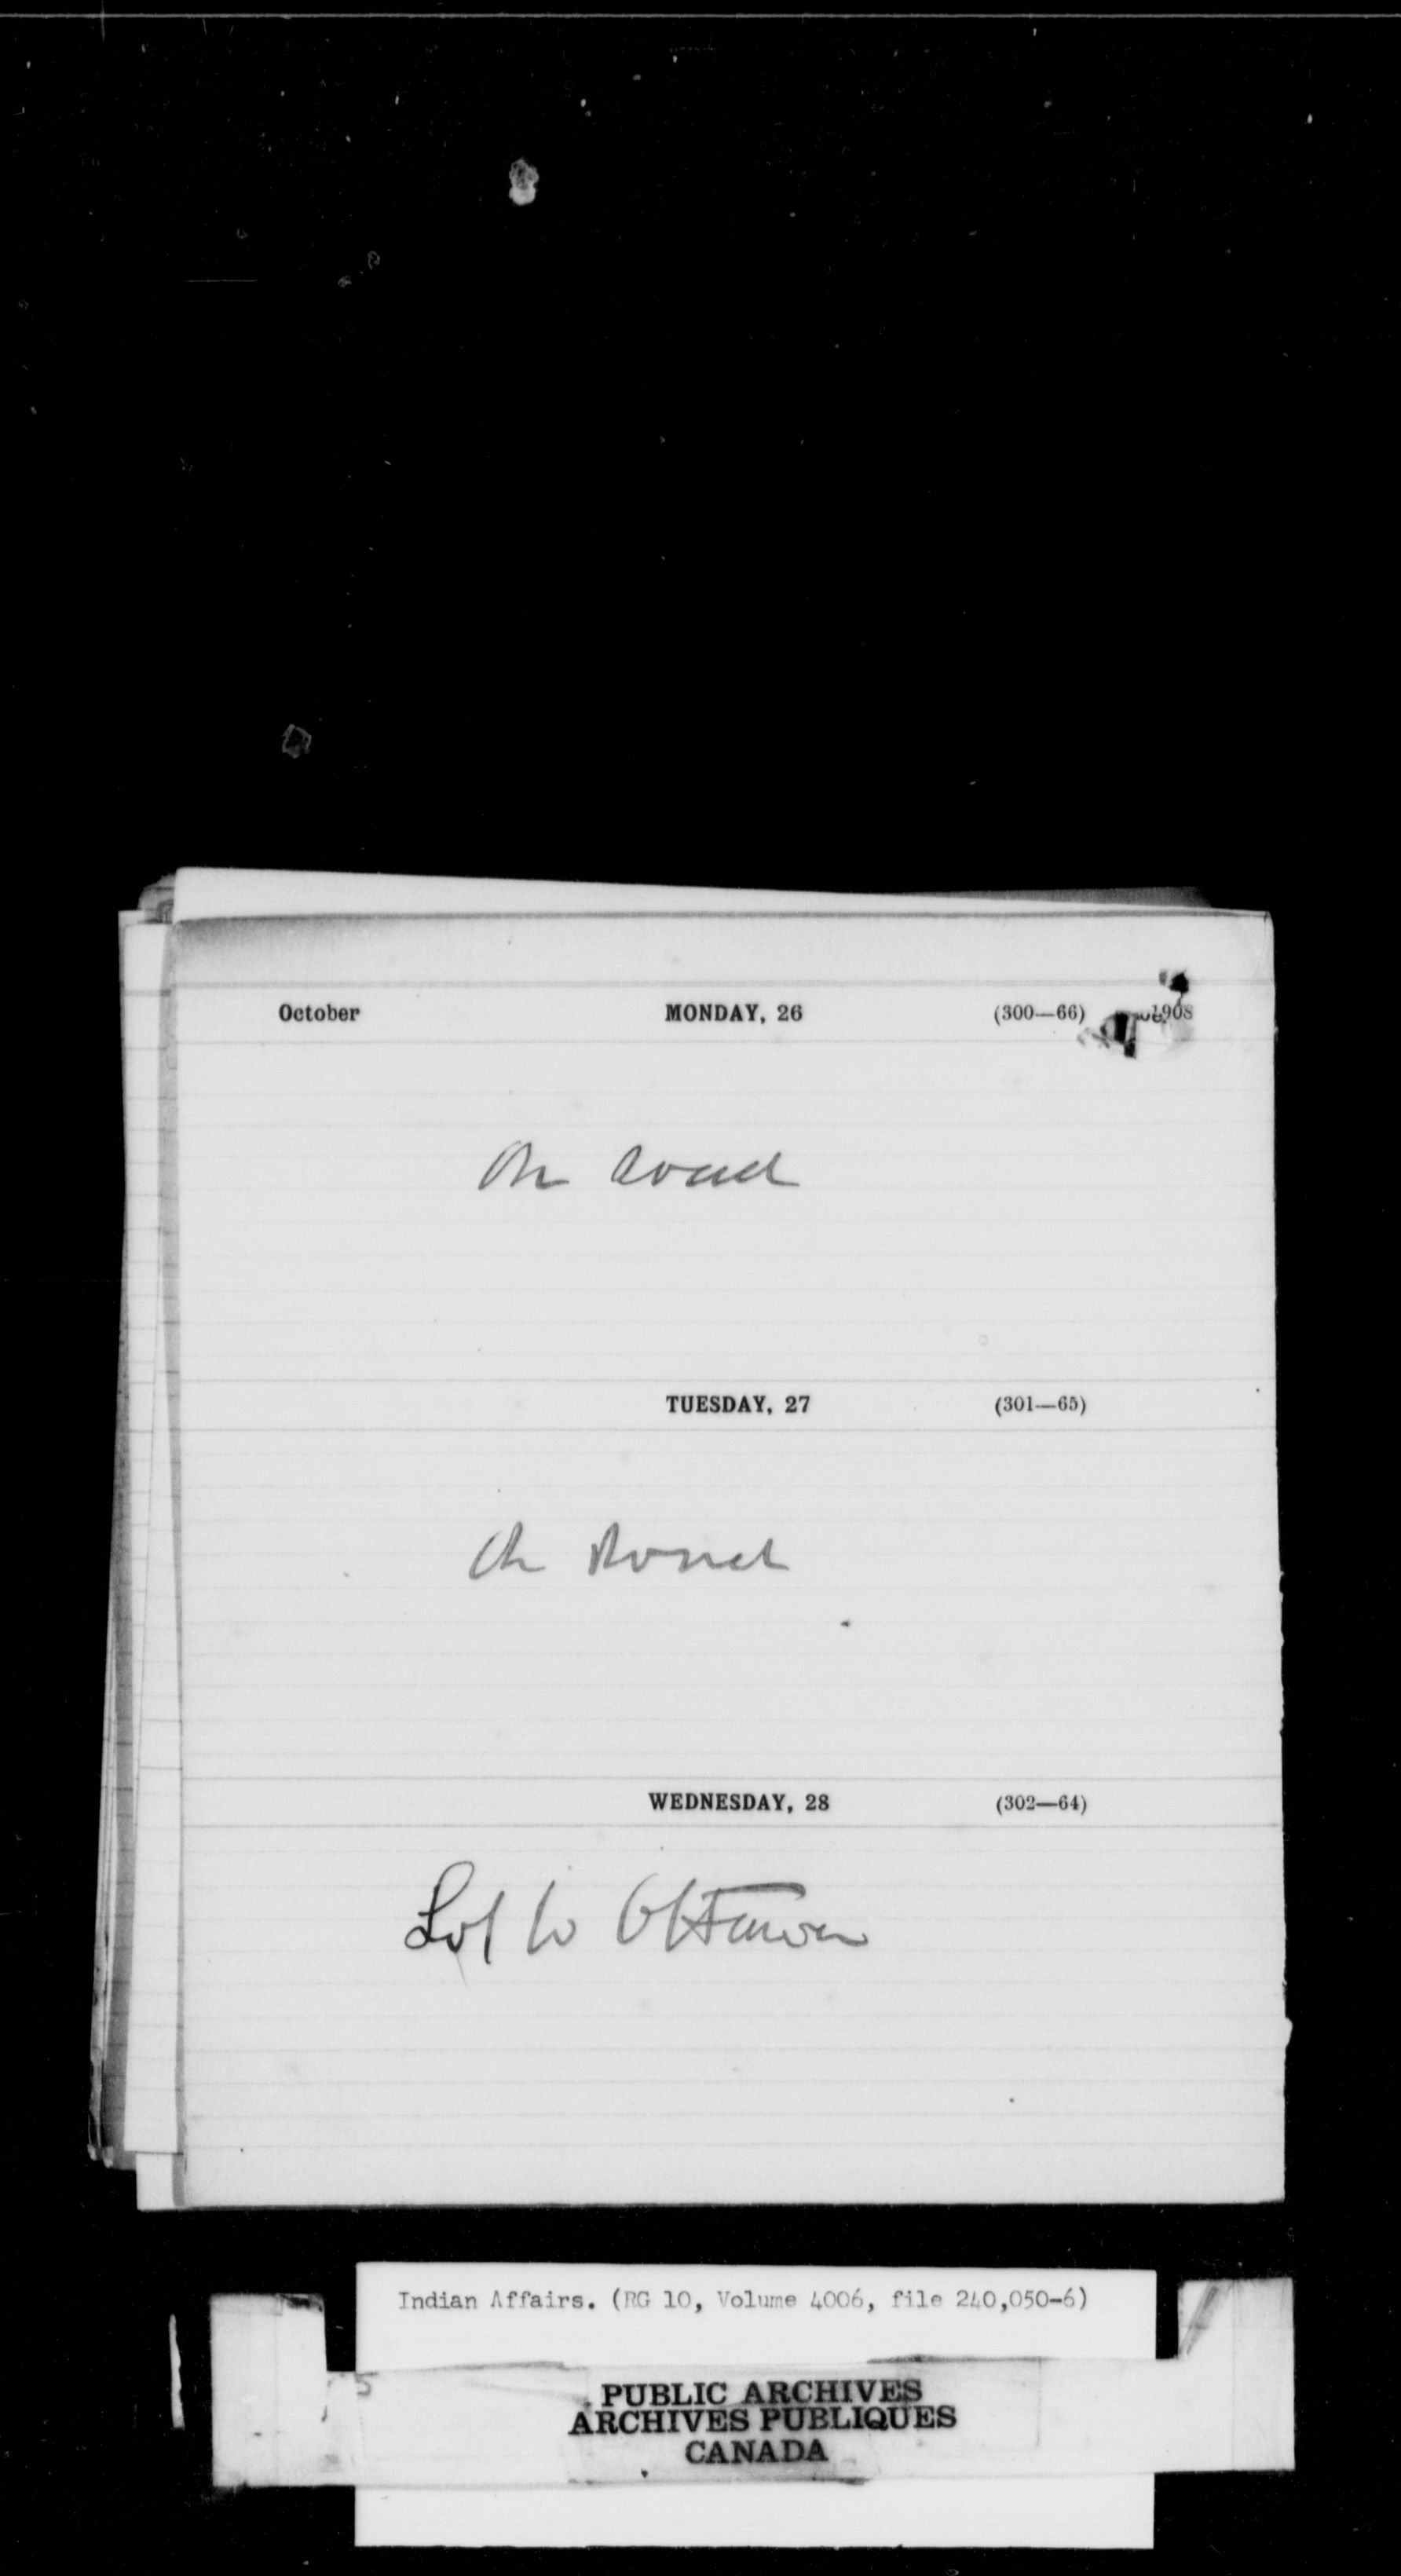 October MONDAY, 26 (300—66) 1908
On Road
TUESDAY, 27 (301—65)
On Road
WEDNESDAY, 28 (302—64)
Got to Ottawa
Indian Affairs. (RG 10, Volume 4006, file 240,050-6)
PUBLIC ARCHIVES
ARCHIVES PUBLIQUES
CANADA